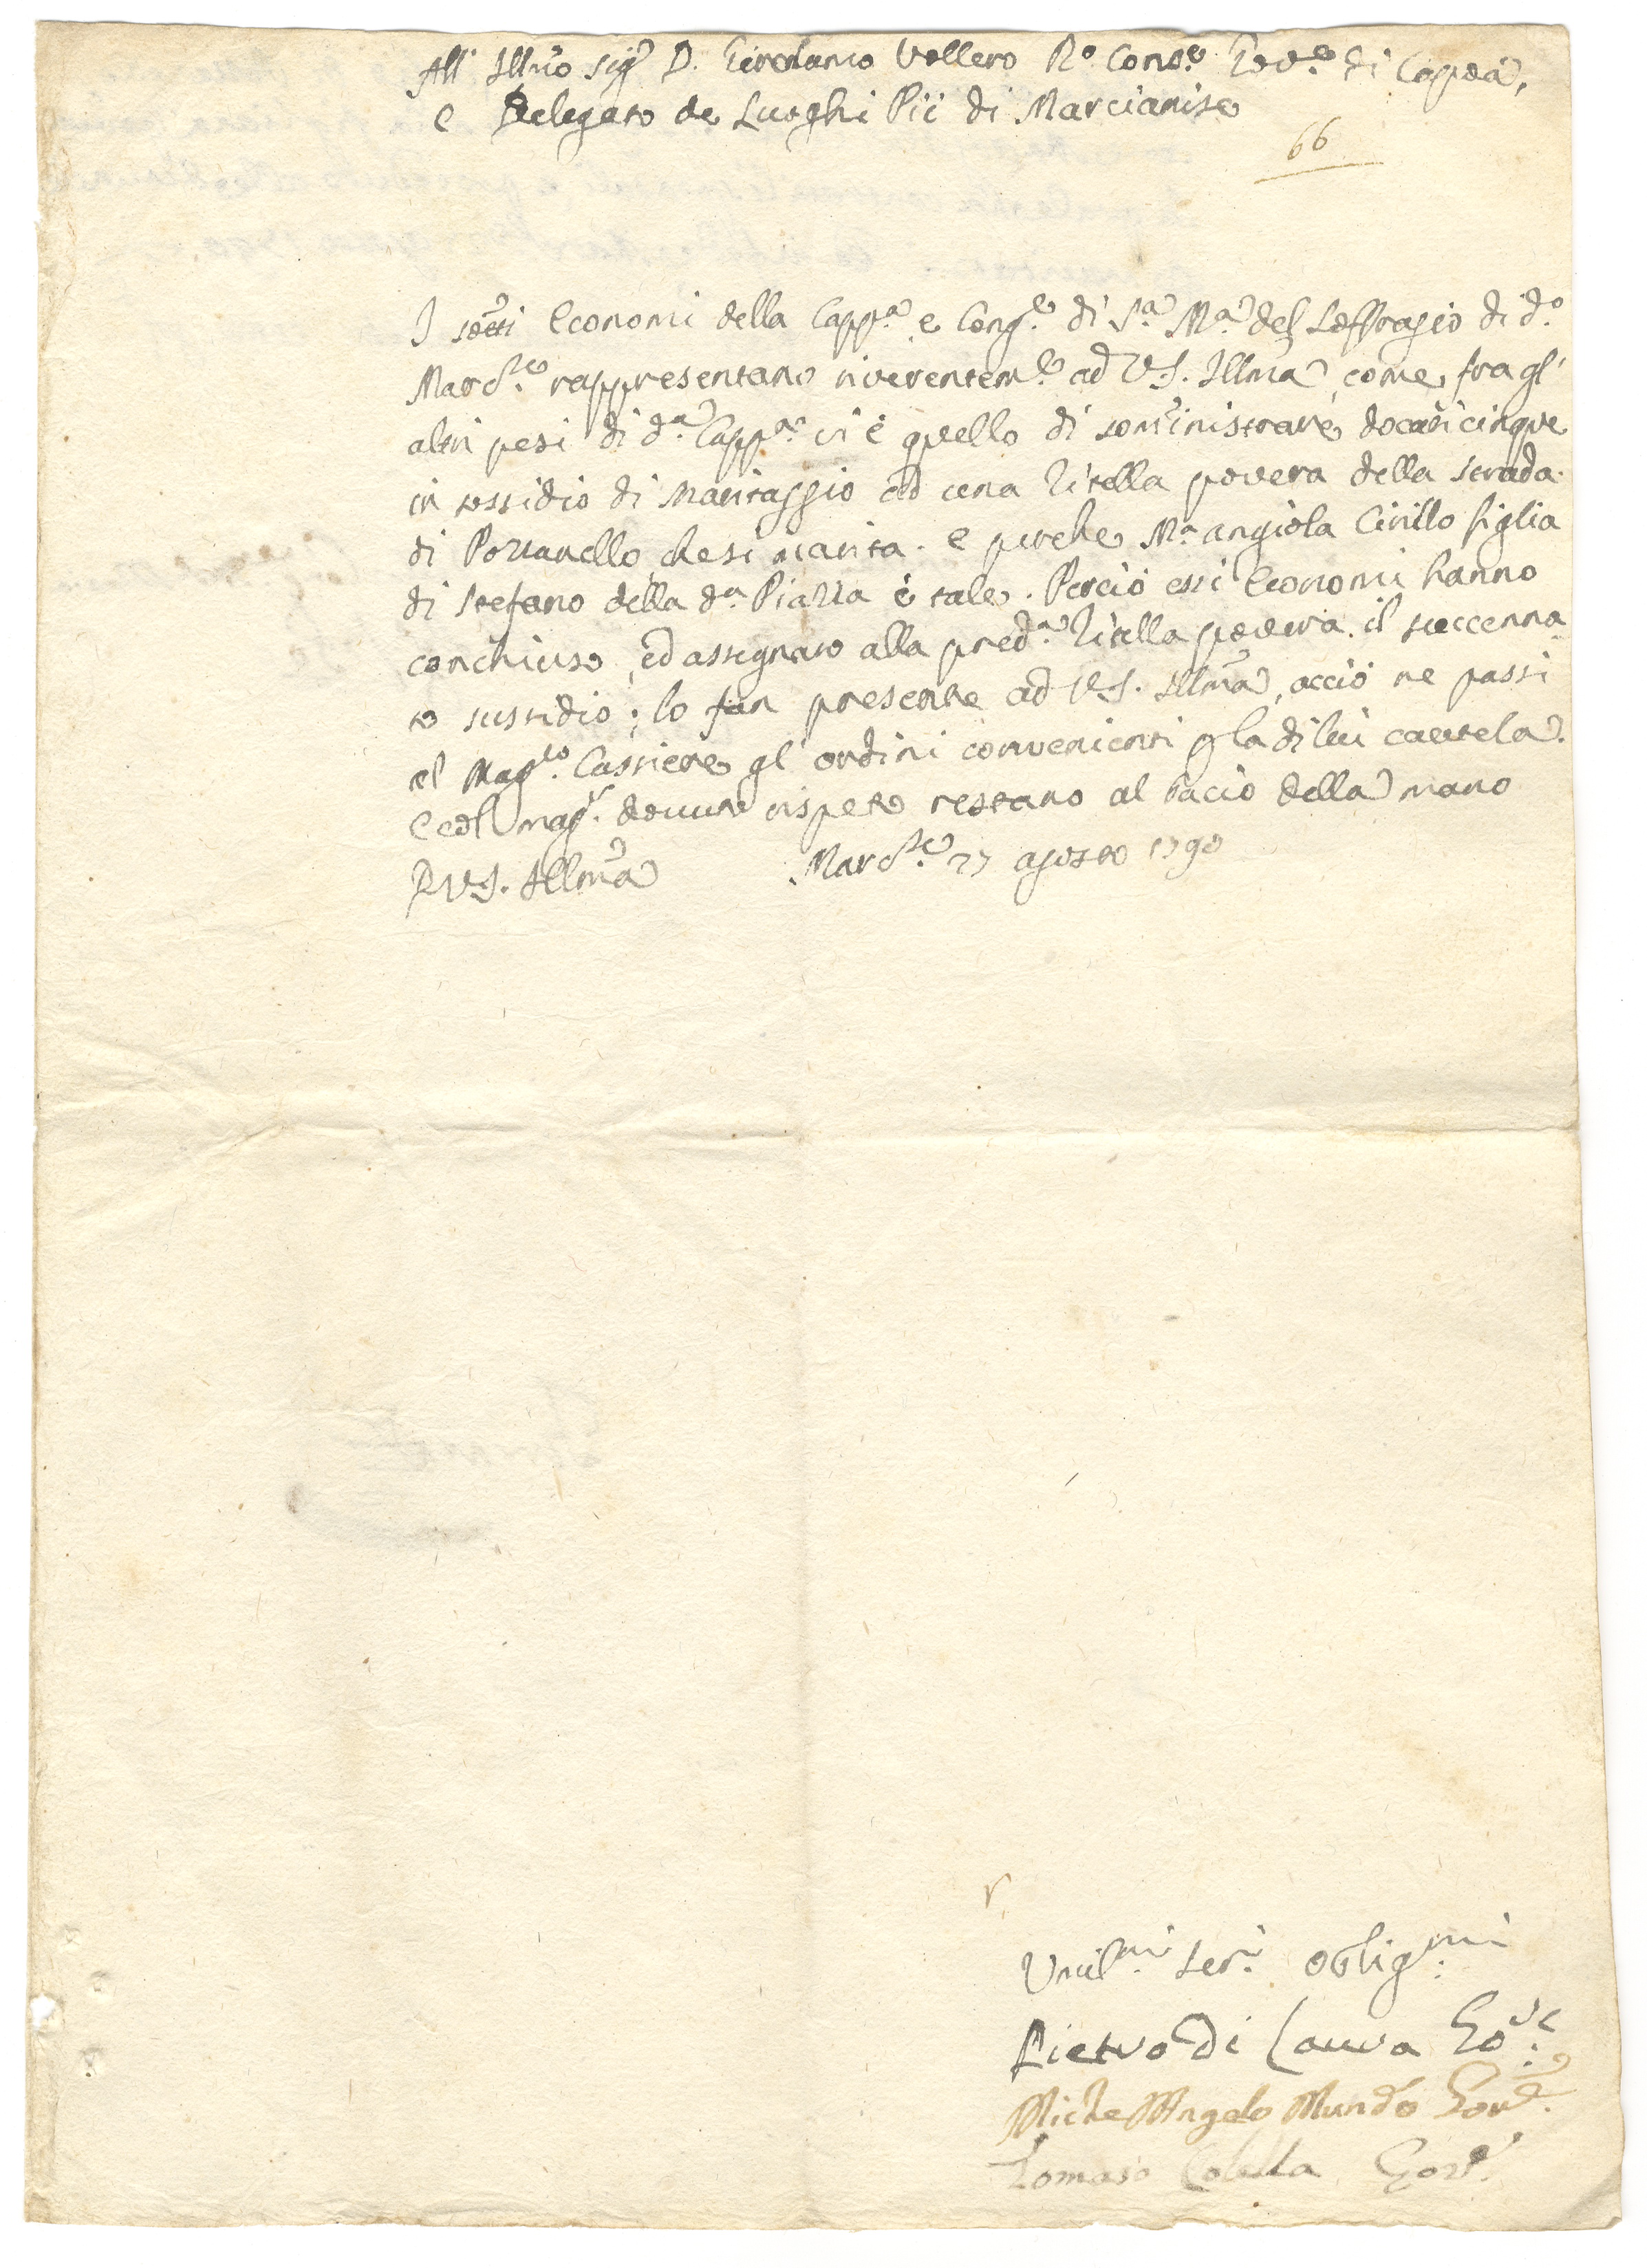 All' Ill͞mo Sig.r D. Girolamo Vollero R.o Cons.e Gov.e di Capoa,
e Delegato de Luoghi Pii di Marcianise
66
I sotti Economi della Capp.a e Cong.e di S.a M.a del Soffragio di d.o
Marc.se rappresentano riverentem.e ad V.S. Ill͞ma, come fra gl'
altri pesi di d.a Capp.a vi è quello di som͞inistrare docati cinque
in sossidio di maritaggio ad una Zitella povera della strada
di Pozzanello, che si marita. e perche M.a angiola Cirillo figlia
di Stefano della d.a Piazza è tale. Perciò essi Economi hanno
conchiuso, ed assegnato alla pred.a Zitella povera il succenna
to sussidio; lo fan presente ad V.S. Ill͞ma, acciò ne passi
al Mag.co Cassiere gl' ordini convenienti p la di lui cautela.
e col mag.r dovuto rispeto restano al bacio della mano
D V.S. Ill͞ma Marc.se 27 agosto 1790
Umil.mi ser.i oblig.mi
Pietro di Lauva Go.ve
Michel'Angelo Mundo Gov.e
Tomaso Colella Gov.e